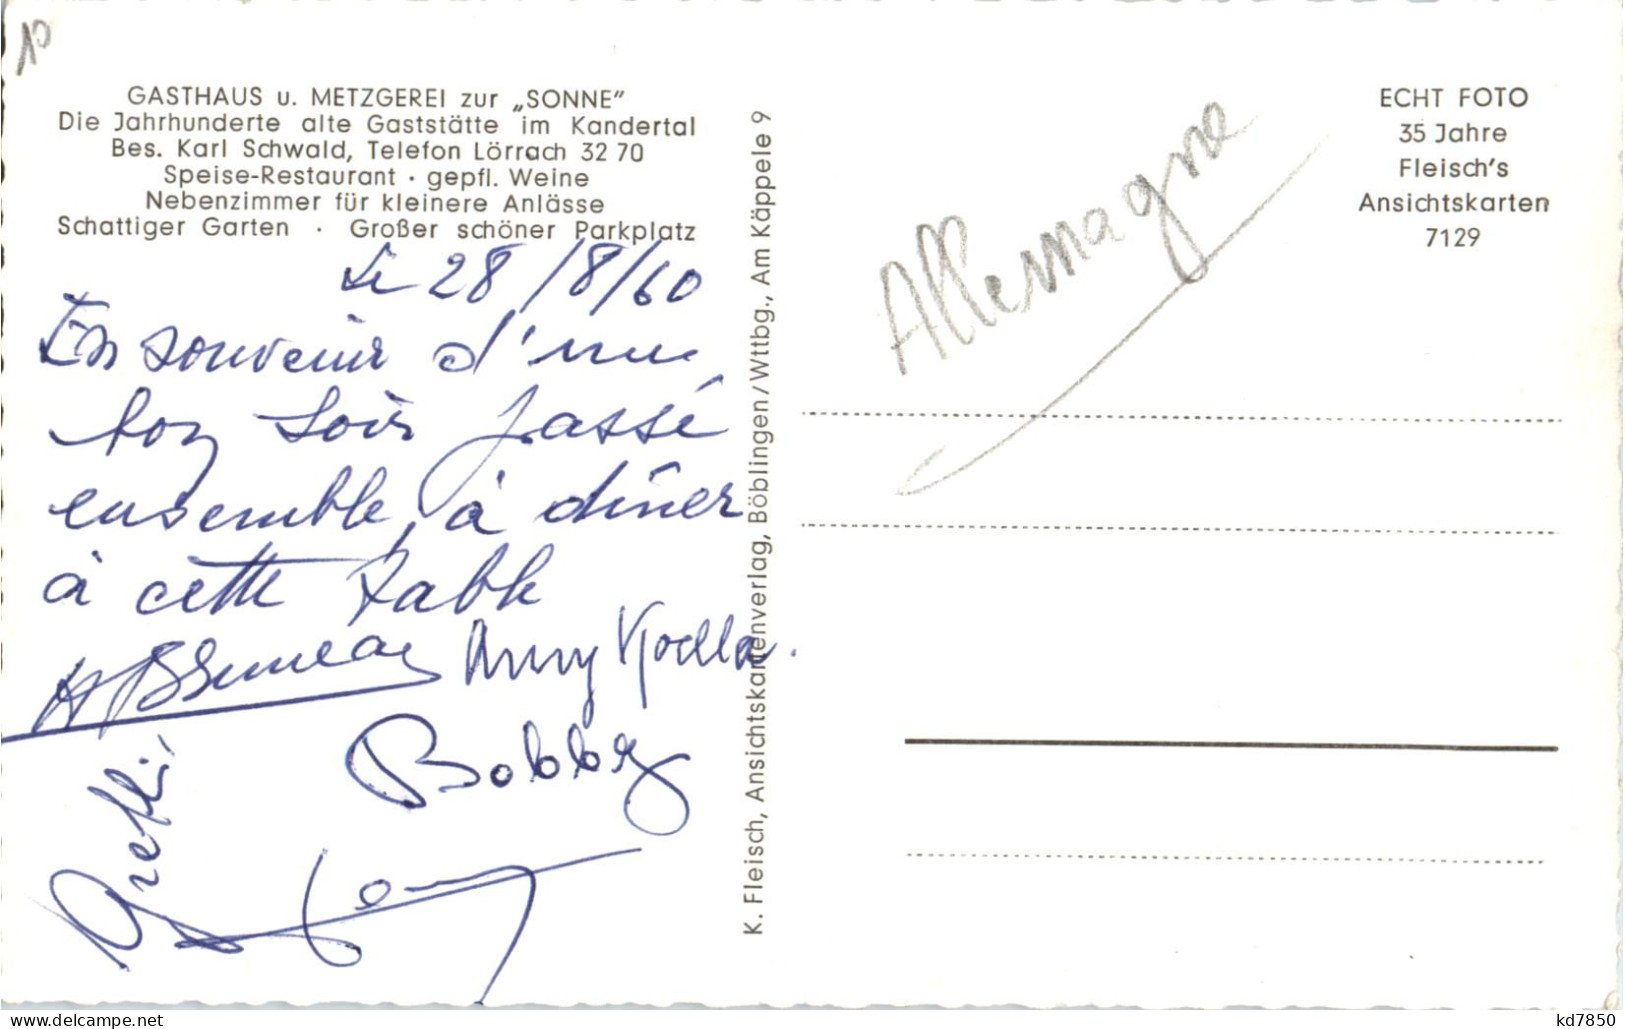 10
GASTHAUS u. METZGEREI zur „SONNE"
Die Jahrhunderte alte Gaststätte im Kandertal
Bes. Karl Schwald, Telefon Lörrach 32 70
Speise-Restaurant · gepfl. Weine
Nebenzimmer für kleinere Anlässe
Schattiger Garten · Großer schöner Parkplatz
Le 28/8/60
En souvenir d'une
bon soir passé
ensemble, à dîner
à cette table
Anny
Bobby
K. Fleisch, Ansichtskartenverlag, Böblingen/Wttbg., Am Käppele 9
Allemagne
ECHT FOTO
35 Jahre
Fleisch's
Ansichtskarten
7129
www.delcampe.net
kd7850